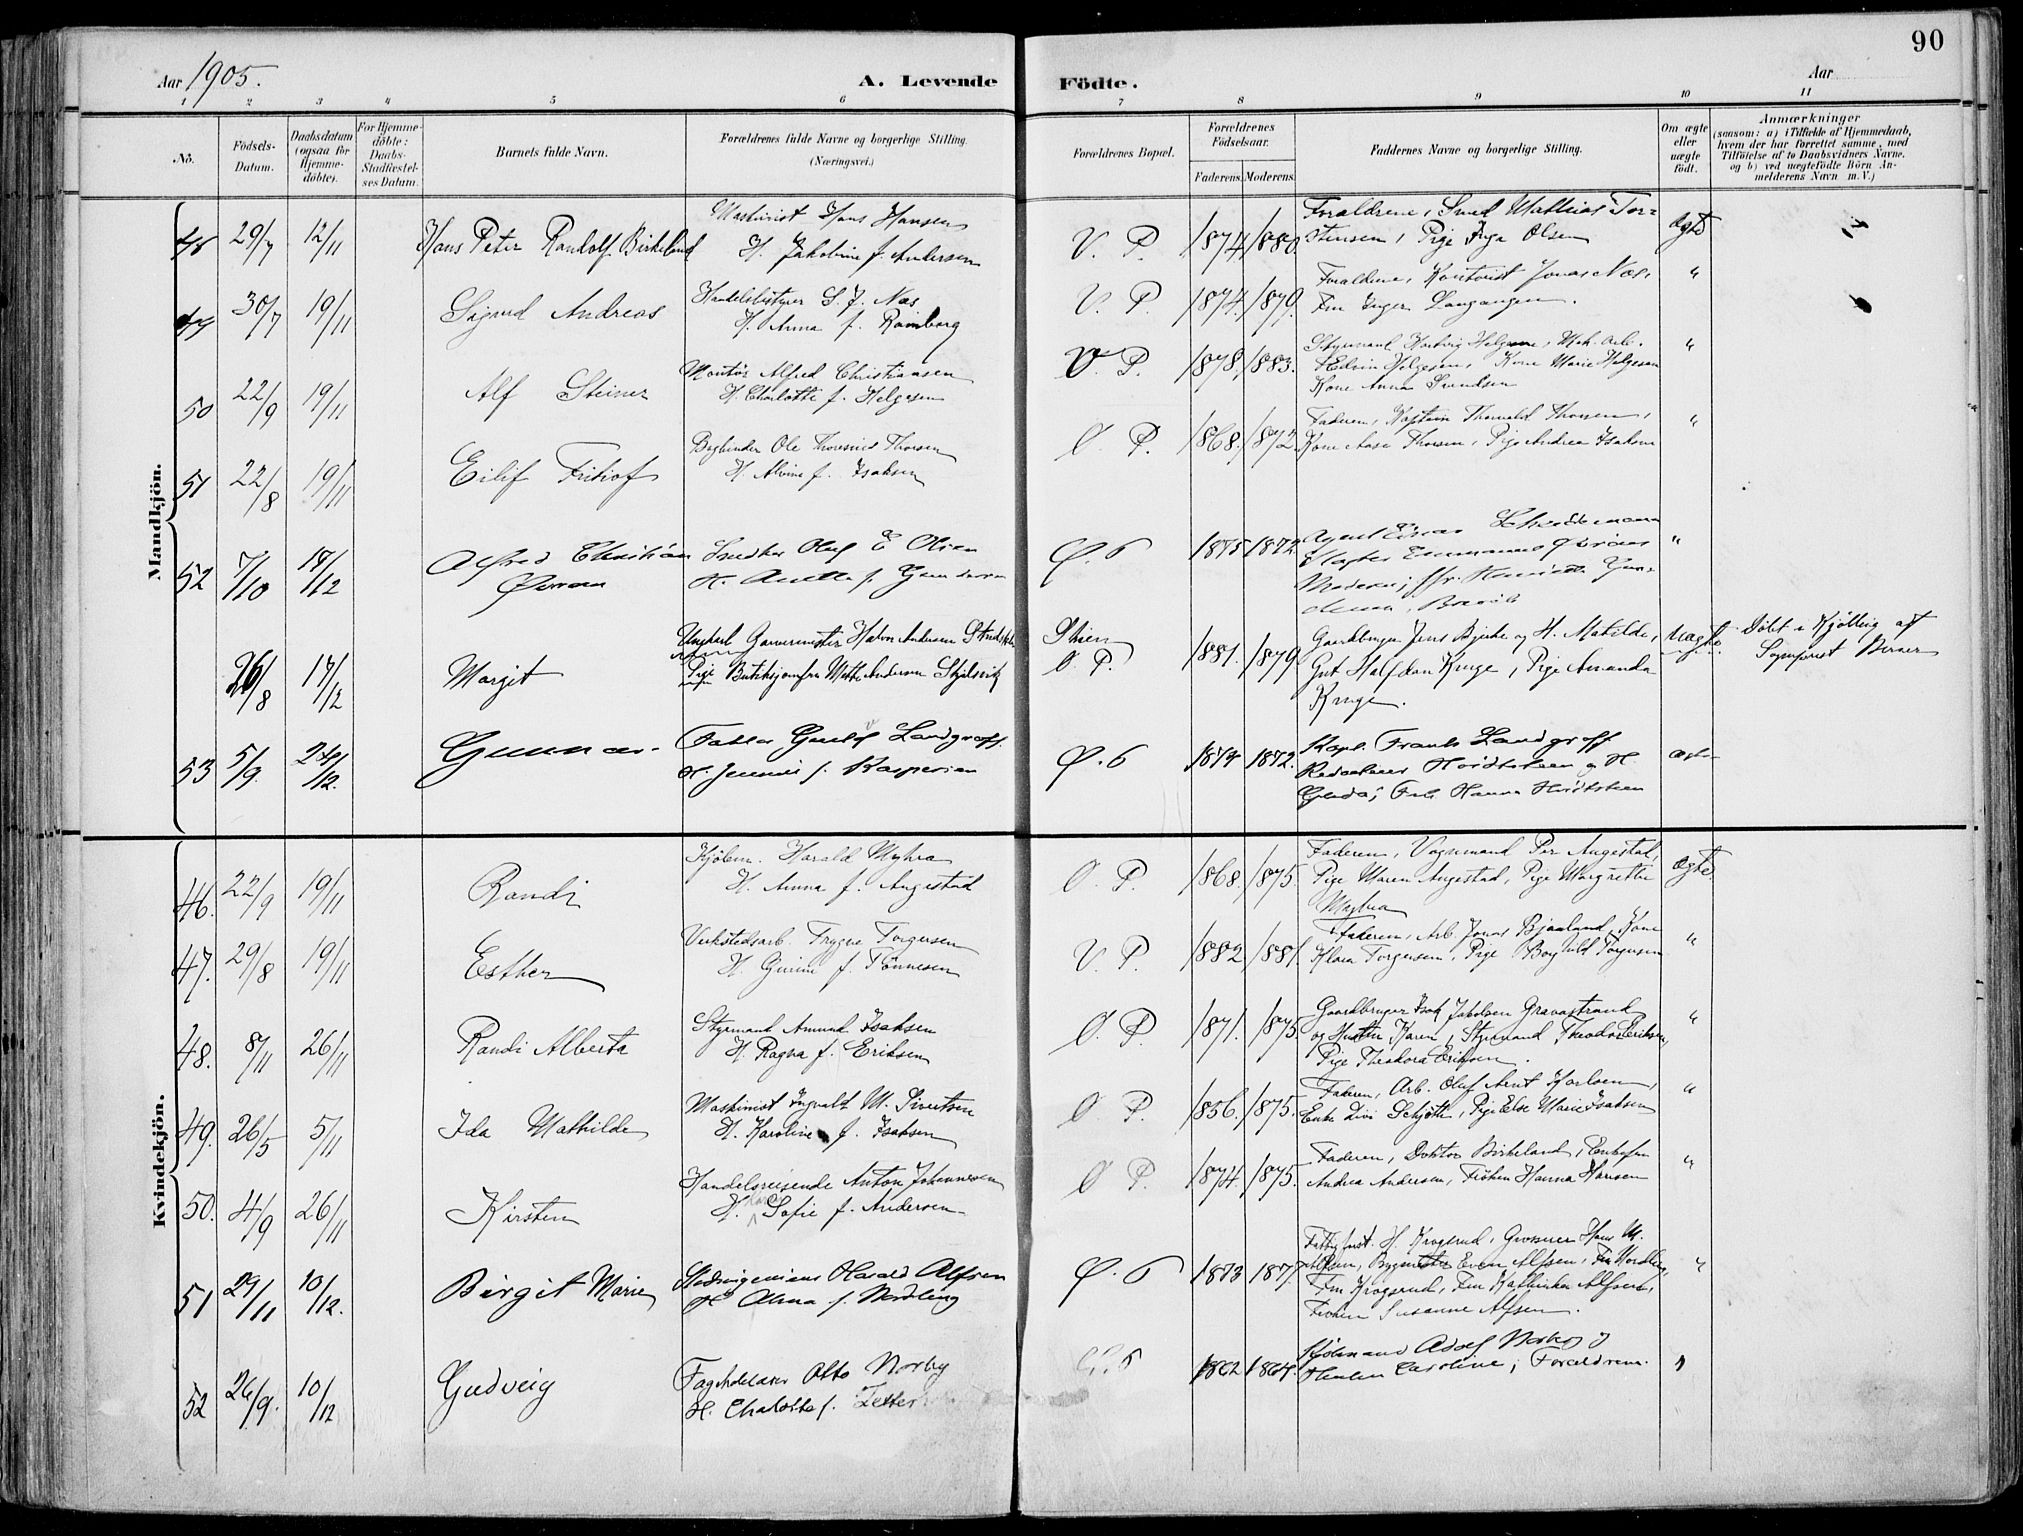 90
Aar 1905.
A. Levende Födte.
Aar
1 2 3 4 5 6 7 8 9 10 11
No.
Födsels-
Datum.
Daabsdatum
(ogsaa for
Hjemme-
döbte).
For Hjemme-
döbte:
Daabs-
Stadfæstel-
ses Datum.
Barnets fulde Navn.
Forældrenes fulde Navne og borgerlige Stilling.
(Næringsvei.)
Forældrenes Bopæl.
Forældrenes
Födselsaar.
Faderens. Moderens.
Faddernes Navne og borgerlige Stilling.
Om ægte
eller
uægte
födt.
Anmærkninger
(saasom: a) i Tilfælde af Hjemmedaab,
hvem der har forrettet samme, med
Tilföielse af to Daabsvidners Navne,
og b) ved uægtefödte Börn An-
melderens Navn m. V.)
Mandkjön.
48 29/7 12/11 Hans Peter Randolf Birkelund
Maskinist Hans Hansen
H. Jakobine f. Andersen
V. P. 1874 1880.
Forældrene, Smed Mathias Tor-
stensen, Pige Inga Olsen
Ægte
49 30/7 19/11 Sigurd Andreas
Handelsbestyrer S. J. Næs
H. Anna f. Ramberg
V. P. 1874. 1879.
Forældrene, Kontorist Jonas Næs,
Fru Inger Langangen.
"
50 22/9 19/11 Alf Steiner
Montör Alfred Christiansen
H. Charlotte f. Helgesen
V. P. 1878. 1883.
Styrmand Hartvig Helgesen, Mek. Arb.
Edvin Helgesen, Kone Marie Helgesen
Kone Anna Svendsen
"
51 22/8 19/11 Eilif Fritiof
Bogbinder Ole Thorsen
H. Alvine f. Isaksen
Ø. P. 1868. 1872.
Faderen, Kaptein Thorvald Thorsen,
Kone Aase Thorsen, Pige Andrea Isaksen
"
52 7/10 17/12 Alfred Christian
Snedker Oluf E Olsen
H. f. Gundersen
Ø. 6 1875 1872
Agent
Emmanuel
Moderen; Gun-
Brevik
"
26/8 17/12 Margit
Ungkarl Garvermester Halvor Andersen
Pige Butikjomfru Mathe Andersen Skjelsvik
Skien
Ø. P. 1881. 1879.
Gaardbruger Jens Bjerke og H. Matilde,
Gut Halfdan Kruge, Pige Amanda
Kruge.
Uægte
Døbt i Kjølbrig af
Sognepræst Berner
53 5/9. 24/12. Gunnar.
Landgraff.
H. Jennie f. Kaspersen
Ø. 6 1874 1872.
Kapt. Frank Landgraff
Redaktør Hvidtsteen og H.
Gerda; Frk. Hanna Hvidtsteen
Ægte
Kvindekjön.
46. 22/9 19/11 Randi
Kjøbm. Harald Myhra
H. Anna f. Augestad
Ø. P. 1868. 1875.
Faderen, Vognmand Per Augestad,
Pige Maren Augestad, Pige Margrethe
Myhra
Ægte.
47. 29/8 19/11 Esther
Verkstedsarb. Trygve Torgersen
H. Gurine f. Tönnesen
V. P. 1882 1881.
Faderen, Arb. Jonas Bjaaland, Kone
Klara Torgersen, Pige Borghild Torgersen
"
48. 8/11 26/11 Randi Alberta
Styrmand Amund Isaksen
H. Ragna f. Eriksen
Ø. P. 1871. 1875.
Gaardbruger Isak Jakobsen Gravastrand
og Hustru Karen, Styrmand Theodor Eriksen,
Pige Theodora Eriksen.
"
49. 26/5 5/11 Ida Mathilde
Maskinist Ingvald M. Sivertsen
H. Karoline f. Isaksen
Ø. P. 1856. 1875.
Faderen, Arb. Oluf Arnt Karlsen,
Enke Livi Schjøtt, Pige Else Marie Isaksen
"
50. 4/9 26/11 Kirsten
Handelsreisende Anton Johannesen
H. Sofie f. Andersen
Ø P. 1874. 1875.
Faderen, Doktor Birkeland, Enkefru
Andrea Andersen, Frøken Hanna Hansen
"
51 29/11 10/12. Birgit Marie
Stadsingeniør Harald Alfsen
H. Alma f. Nordling
Ø. 6 1873 1877.
H. Krogsrud, Grosserer Hans M.
Alfsen, Bygmester Even Alfsen, Fru Nordling,
Fru Krogsrud, Fru Kathinka Alfsen,
Frøken Susanne Alfsen.
"
52 26/9. 10/12 Gudveig
Otto Norby
H. Chalotte f. Zetter
6 1862 1864.
Kjøbmand Adolf Norby og
Hustru Caroline; Forældrene.
"